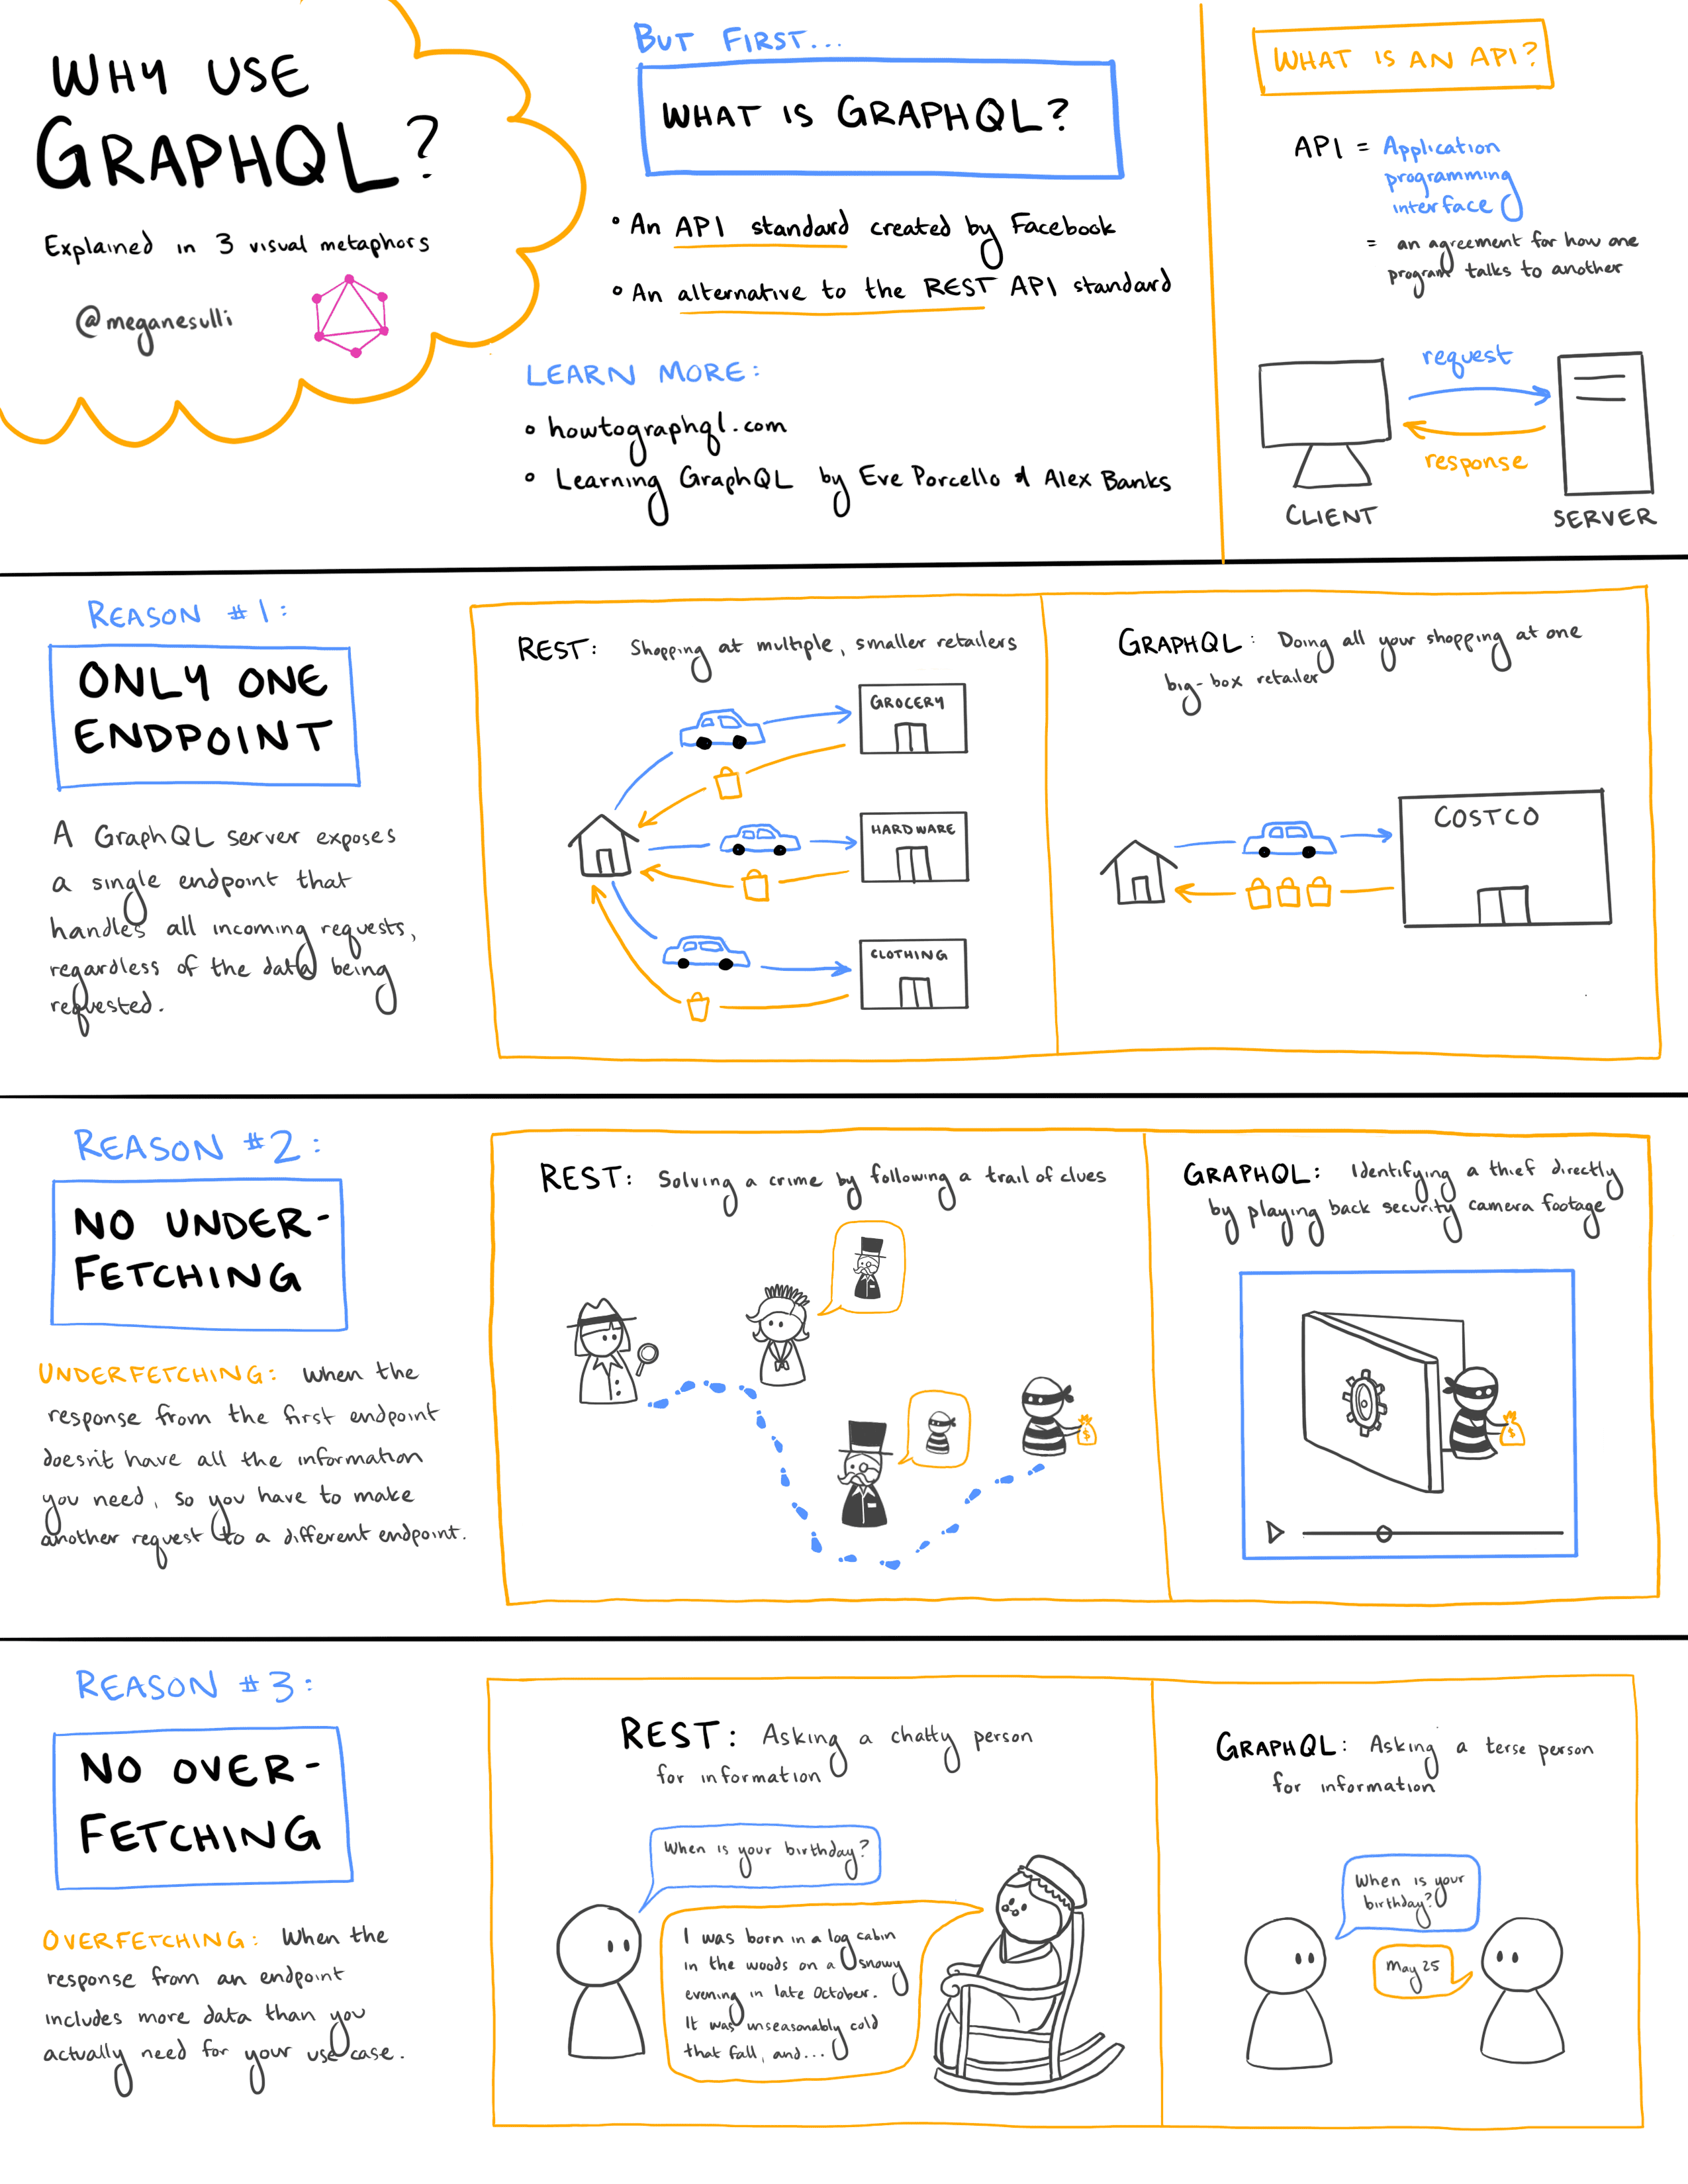 WHY USE
GRAPHQL?
Explained in 3 visual metaphors
@meganesulli
BUT FIRST...
WHAT IS GRAPHQL?
• An API standard created by Facebook
• An alternative to the REST API standard
LEARN MORE:
• howtographql.com
• Learning GraphQL by Eve Porcello & Alex Banks
WHAT IS AN API?
API = Application
programming
interface
= an agreement for how one
program talks to another
request
response
CLIENT
SERVER
REASON #1:
ONLY ONE
ENDPOINT
A GraphQL server exposes
a single endpoint that
handles all incoming requests,
regardless of the data being
requested.
REST: Shopping at multiple, smaller retailers
GROCERY
HARDWARE
CLOTHING
GRAPHQL: Doing all your shopping at one
big-box retailer
COSTCO
REASON #2:
NO UNDER-
FETCHING
UNDERFETCHING: When the
response from the first endpoint
doesn't have all the information
you need, so you have to make
another request to a different endpoint.
REST: Solving a crime by following a trail of clues
GRAPHQL: Identifying a thief directly
by playing back security camera footage
$
$
REASON #3:
NO OVER-
FETCHING
OVERFETCHING: When the
response from an endpoint
includes more data than you
actually need for your use case.
REST: Asking a chatty person
for information
When is your birthday?
I was born in a log cabin
in the woods on a snowy
evening in late October.
It was unseasonably cold
that fall, and...
GRAPHQL: Asking a terse person
for information
When is your
birthday?
May 25